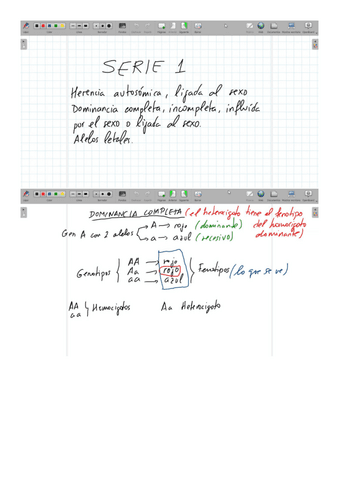 SERIE 1
Herencia autosómica, ligada al sexo
Dominancia completa, incompleta, influida
por el sexo o ligada al sexo.
Alelos letales.
DOMINANCIA COMPLETA (el heterocigoto tiene el fenotipo
del homocigoto
dominante)
Gen A con 2 alelos
A → rojo (dominante)
a → azul (recesivo)
Genotipos { AA → rojo
Aa → rojo
aa → azul } Fenotipos (lo que se ve)
AA
aa } Homocigotos
Aa Heterocigoto